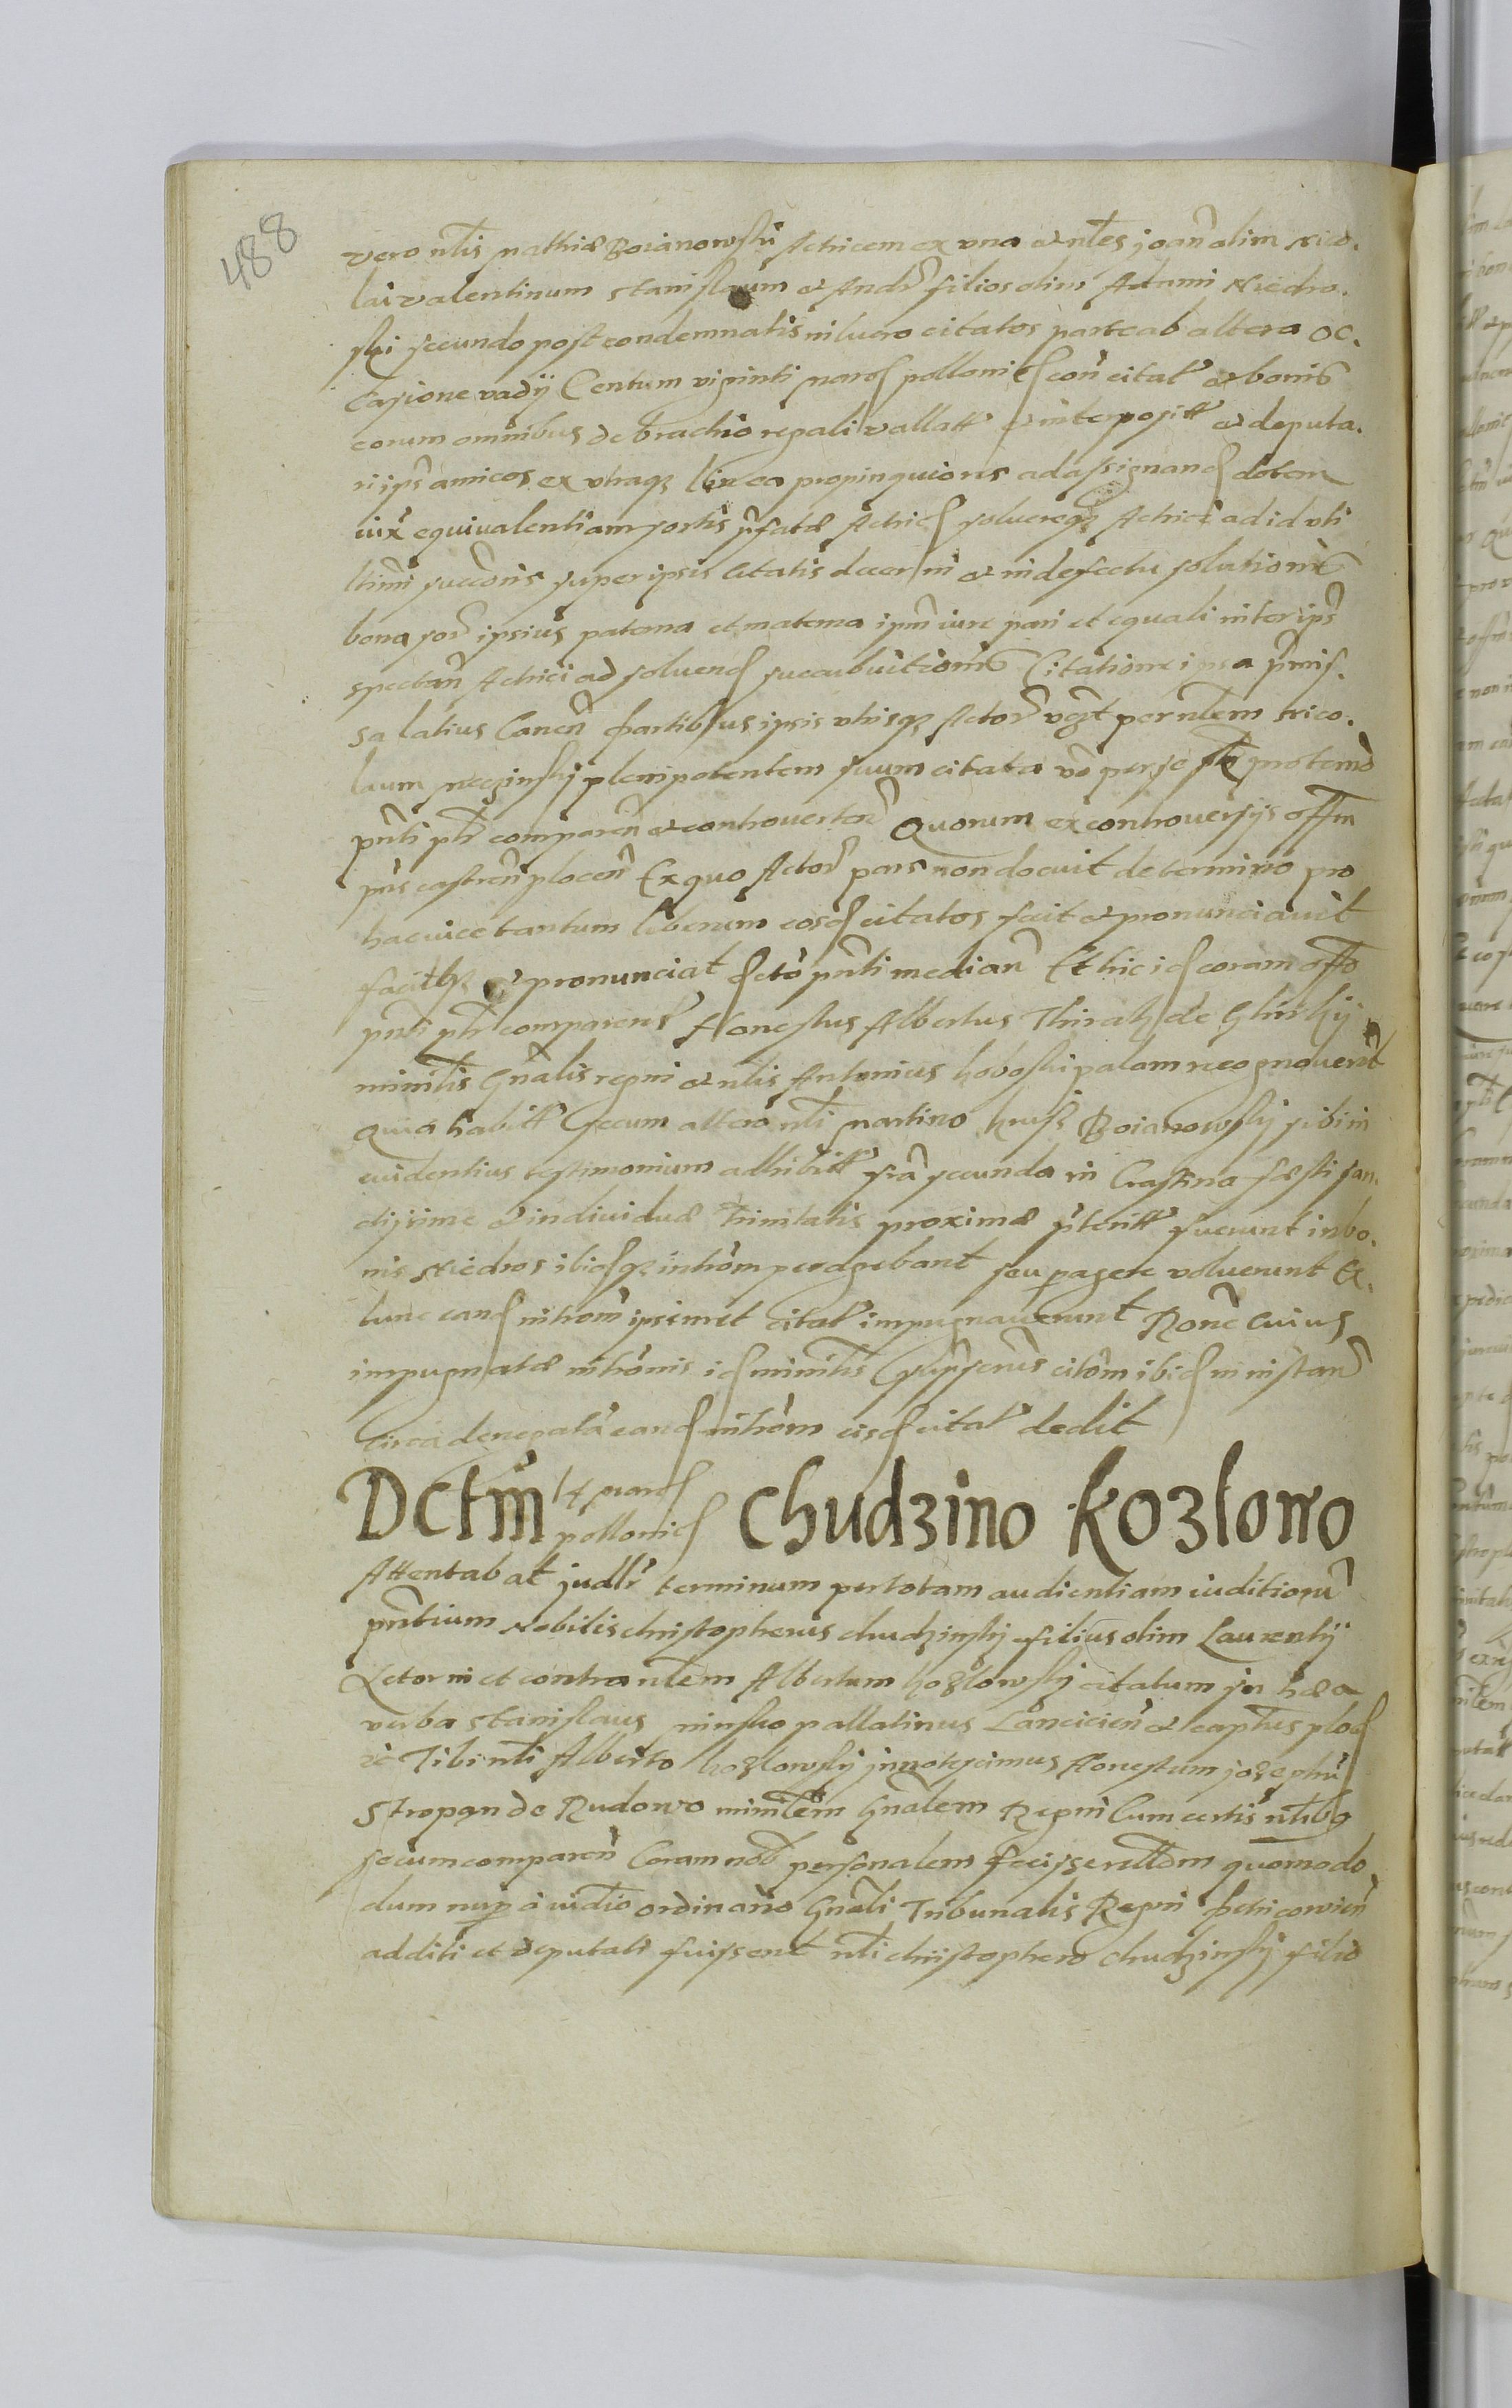 488
vero nlis Mathiæ Boianowski Actricem ex una et nles Joan olim Nico.
lai Valentinum Stanislaum et Andr filios olim Adami Niedro.
ski secundo post condemnatis in lucro citatos parte ab altera oc.
casione vadij Centum viginti marc pollonic con citat et bonis
eorum omnibus de brachio regali vallatt et interpositt et deputa.
ri ips amicos ex utraq linea propinquiores ad assignand dotem
iux equivalentiam sortis pfatæ Actric solvereq Actrici ad id
super ipsis Citatis decerni et in defectu solutionis
bona sor ipsius paterna et materna ipm iure pari et equali inter ips
spectan Actrici ad solvend Citatione ipsa pmis.
sa latius Canen Partibus ipsis utrisq Actor vgt per nlem Nico.
laum plenipotentem suum citata vo per se in termo
pnti ptr comparen et controverten Quorum ex controversijs offm
pns castren plocen Ex quo Actor pars non docuit de termino pro
hac vice tantum liberum eosd citatos fecit et pronunciavit
facitq et pronunciat dcto pnti median Et hic id coram offo
pnti ptr comparens Honestus Albertus Thirak de
minlis Gnalis regni et nlis Antonius palam recognoverut
Quia habitt secum altero nli Martino Boianowsky sibi in
evidentius testimonium adhibitt fria secunda in Crastino festi san.
ctissime et individuæ Trinitatis proximæ pteritt fuerunt in bo.
nis Niedros ibidq introm peragebant seu pagere voluerunt Ex.
tunc eand introm ipsimet citat impugnaverunt Rone cuius
impugnatæ intronis id minlis citom ibid in instan
circa denegata eand introm eisd citat dedit
Dctm 14 marc pollonic Chudzino Kozlowo
Attentabat judlr terminum per totam audientiam iuditioru
pntium Nobilis christopherus chudzinsky filius olim Laurentij
Actor in et contra nlem Albertum kozlowsky citatum in hæc
verba Stanislaus minsko pallatinus Lancicien et captus ploc
Tibi nli Alberto kozlowsky innotescimus Honestum Josephu
Stropan de Rudowo minlem Gnalem Regni Cum certis nlibq
secum comparen Coram nob personalem fecisse relom quomodo
dum nup a iudio ordinario Gnali Tribunalis Regni Petricovien
additi et deputati fuissent nli christophero chudzinsky filio